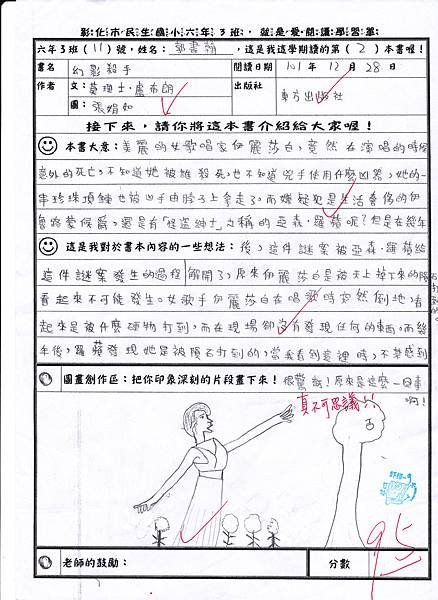 彰化市民生國小六年3班，就是愛閱讀學習單
六年3班(11)號，姓名：郭書翰，這是我這學期讀的第(2)本書喔！
書名 幻影殺手 閱讀日期 101年12月28日
作者 文：莫理士·盧布朗 出版社 東方出版社
圖：張娟如
接下來，請你將這本書介紹給大家喔！
本書大意：美麗的女歌唱家伊麗莎白，竟然在演唱的時候
意外的死亡，不知道她被誰殺死，也不知道兇手使用什麼凶器，她的一
串珍珠項鍊也被凶手由脖子上拿走了。而嫌疑犯是生活奢侈的伊
魯路蒙侯爵，還是有「怪盜紳士」之稱的亞森·羅蘋呢？但是在幾年
這是我對於書本內容的一些想法：後，這件謎案被亞森·羅蘋給
解開了，原來伊麗莎白是被天上掉下來的隕
石打到的。
這件謎案發生的過程
看起來不可能發生。女歌手伊麗莎白在唱歌時突然倒地，看
起來是被什麼硬物打到，而在現場卻沒有發現任何的東西。而幾
年後，羅蘋發現她是被隕石打到的，當我看到這裡時，不禁感到
圖畫創作區：把你印象深刻的片段畫下來！很驚訝！原來是這麼一回事
啊！
真不可思議！！
95
老師的鼓勵： 分數